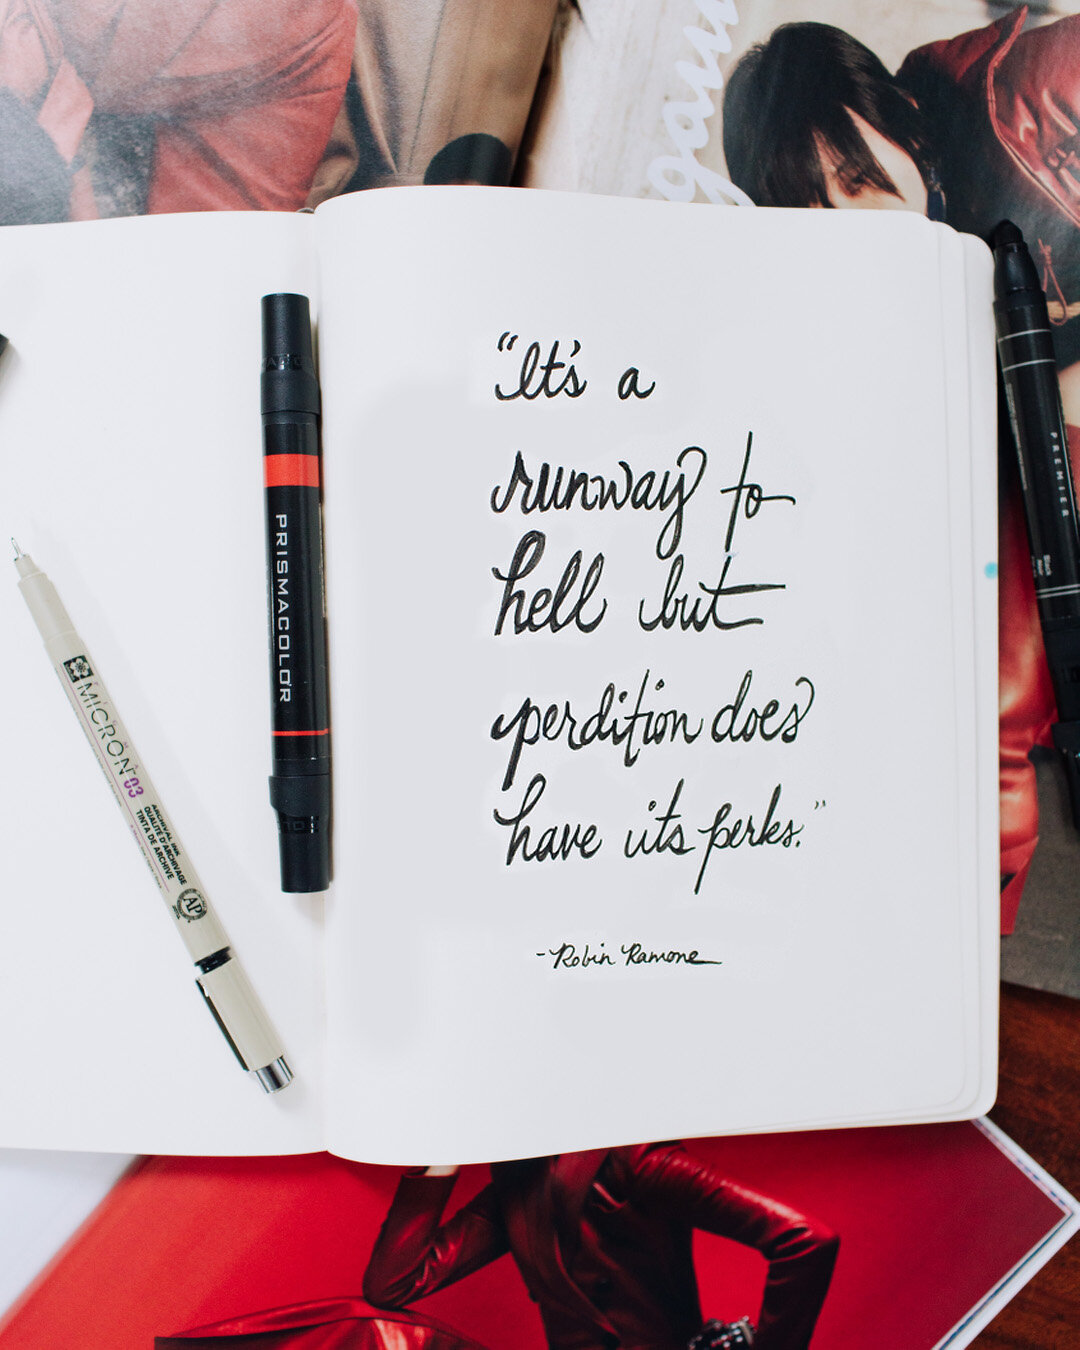 "It's a
runway to
hell but
perdition does
have its perks."
-Robin Ramone
PRISMACOLOR
MICRON 03
ARCHIVAL INK
QUALITÉ D'ARCHIVAGE
TINTA DE ARCHIVE
AP
PREMIER